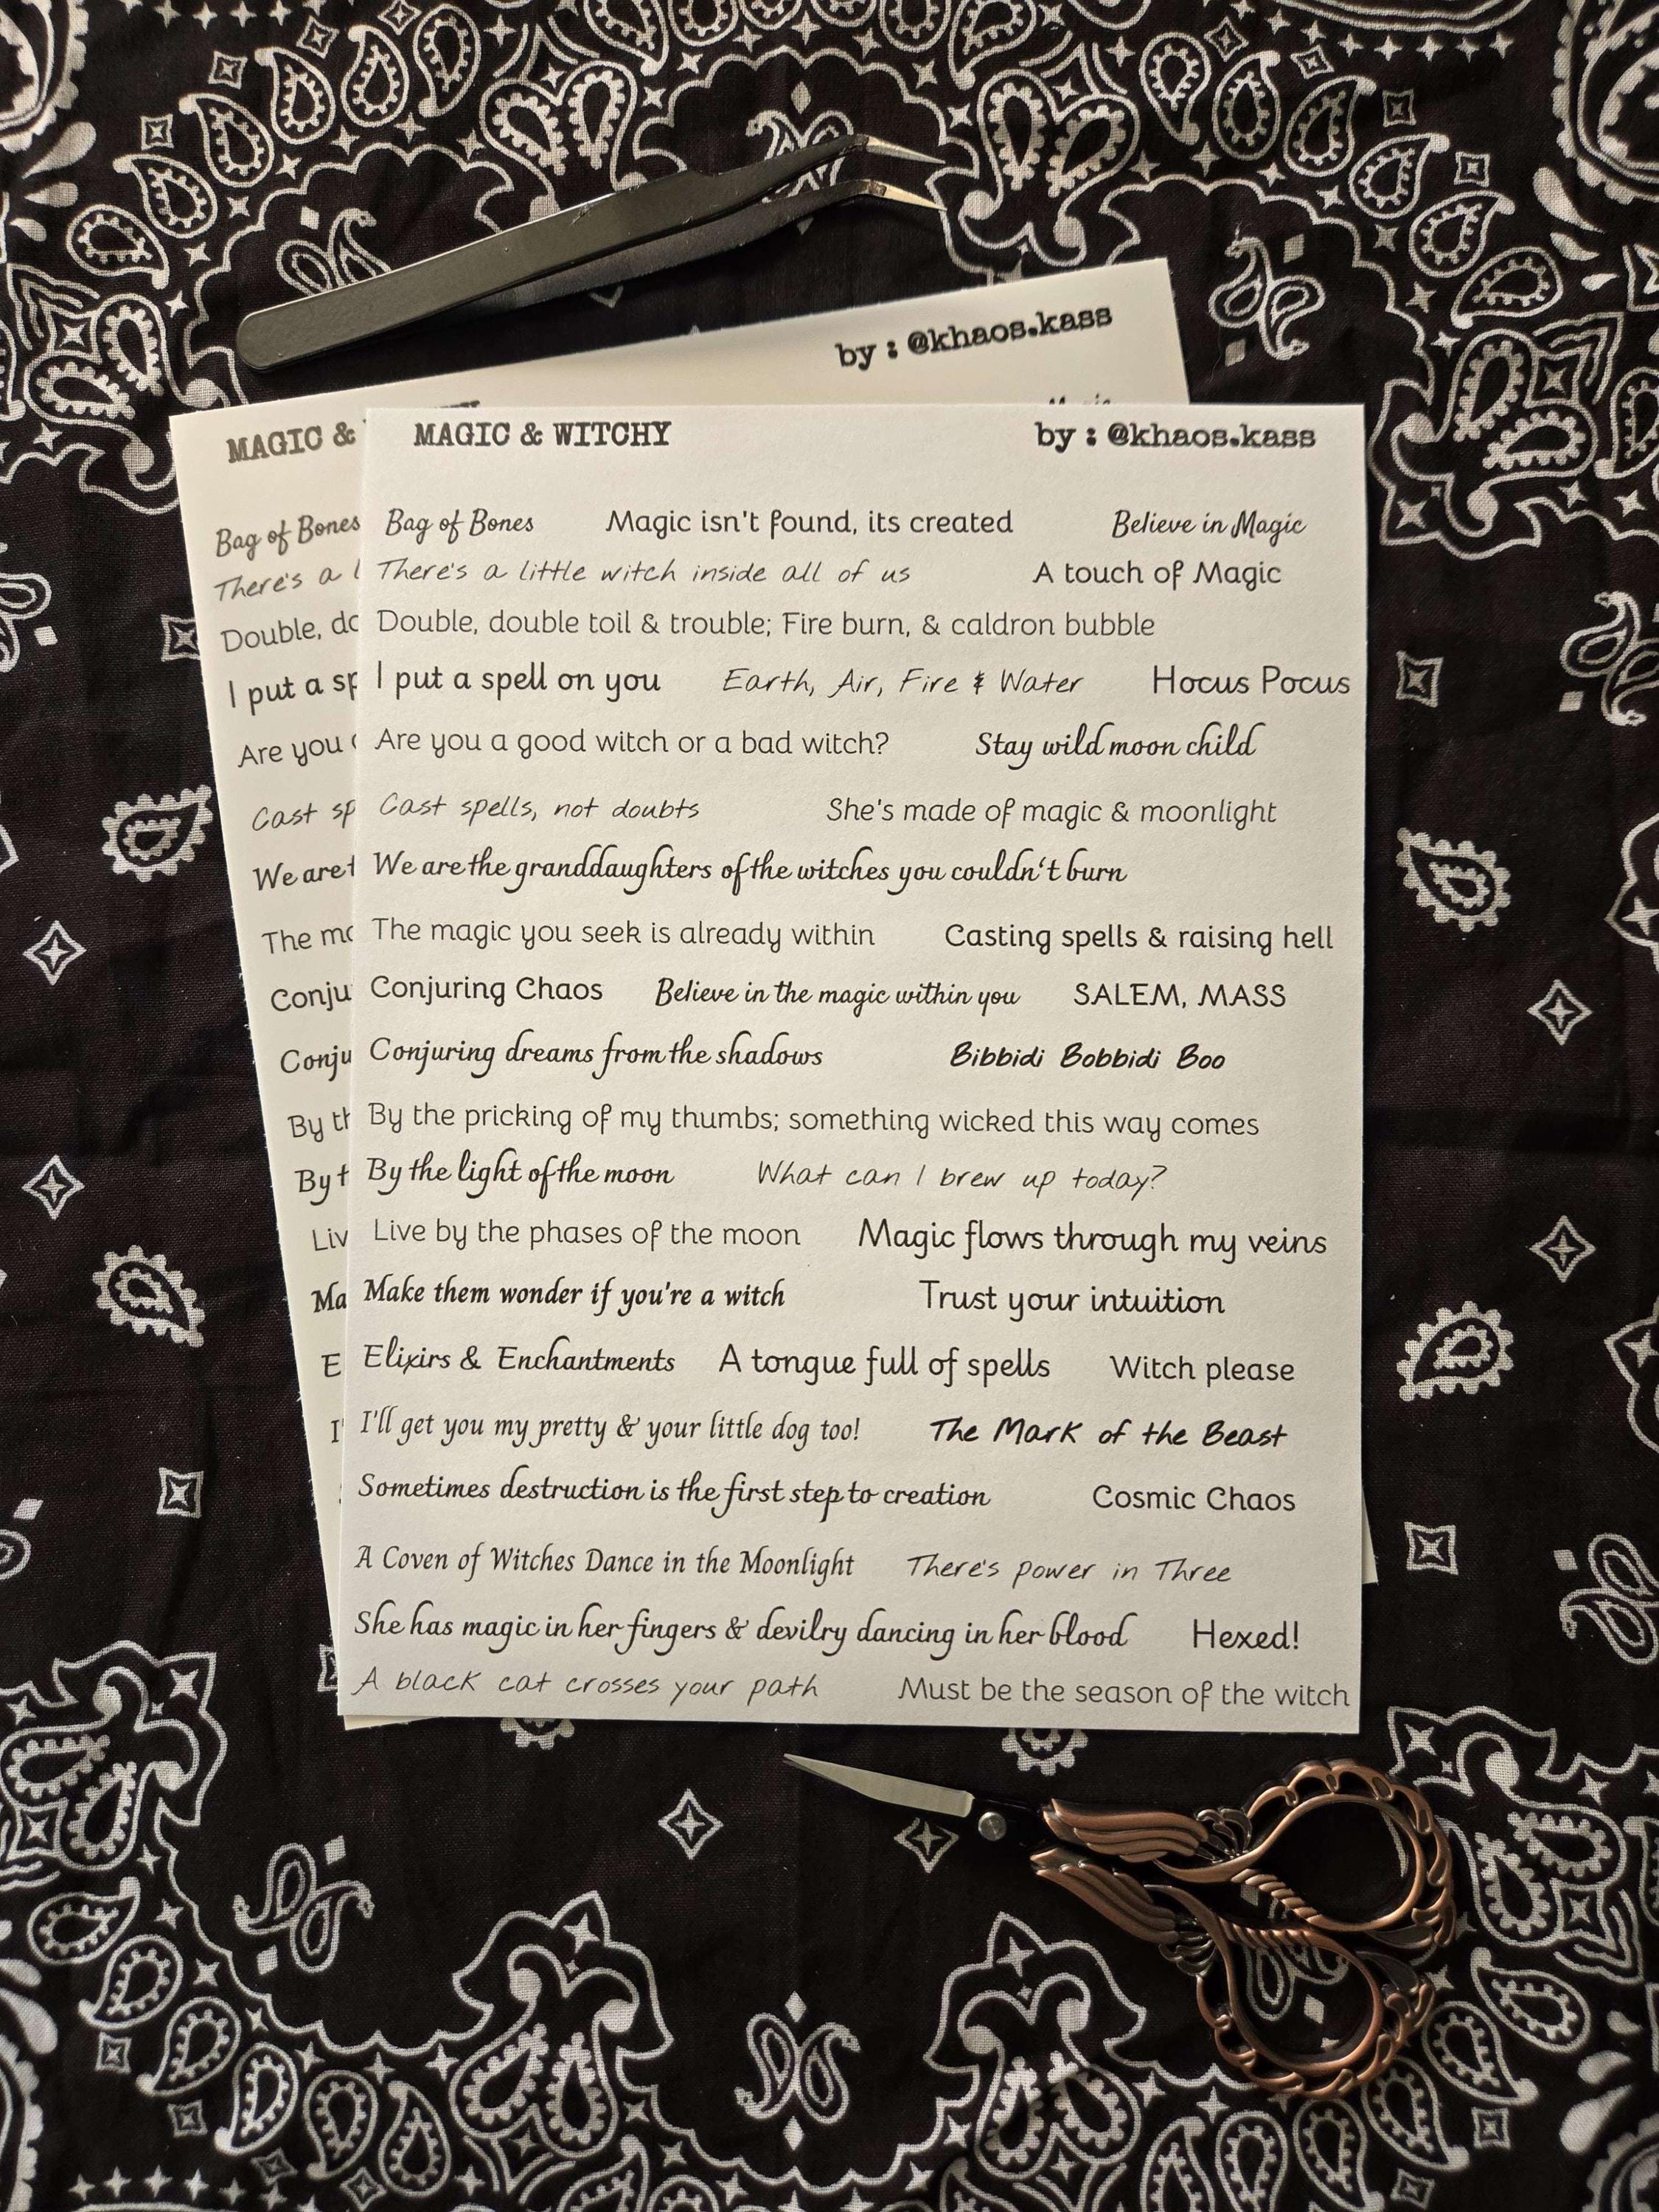 by : @khaos.kass
MAGIC &
Bag of Bones
There's a
Double,
I put a
Are you
Cast
We are
The
By
MAGIC & WITCHY by : @khaos.kass
Bag of Bones Magic isn't found, its created Believe in Magic
There's a little witch inside all of us A touch of Magic
Double, double toil & trouble; Fire burn, & caldron bubble
I put a spell on you Earth, Air, Fire & Water Hocus Pocus
Are you a good witch or a bad witch? Stay wild moon child
Cast spells, not doubts She's made of magic & moonlight
We are the granddaughters of the witches you couldn't burn
The magic you seek is already within Casting spells & raising hell
Conjuring Chaos Believe in the magic within you SALEM, MASS
Conjuring dreams from the shadows Bibbidi Bobbidi Boo
By the pricking of my thumbs; something wicked this way comes
By the light of the moon What can I brew up today?
Live by the phases of the moon Magic flows through my veins
Make them wonder if you're a witch Trust your intuition
Elixirs & Enchantments A tongue full of spells Witch please
I'll get you my pretty & your little dog too! The Mark of the Beast
Sometimes destruction is the first step to creation Cosmic Chaos
A Coven of Witches Dance in the Moonlight There's power in Three
She has magic in her fingers & devilry dancing in her blood Hexed!
A black cat crosses your path Must be the season of the witch